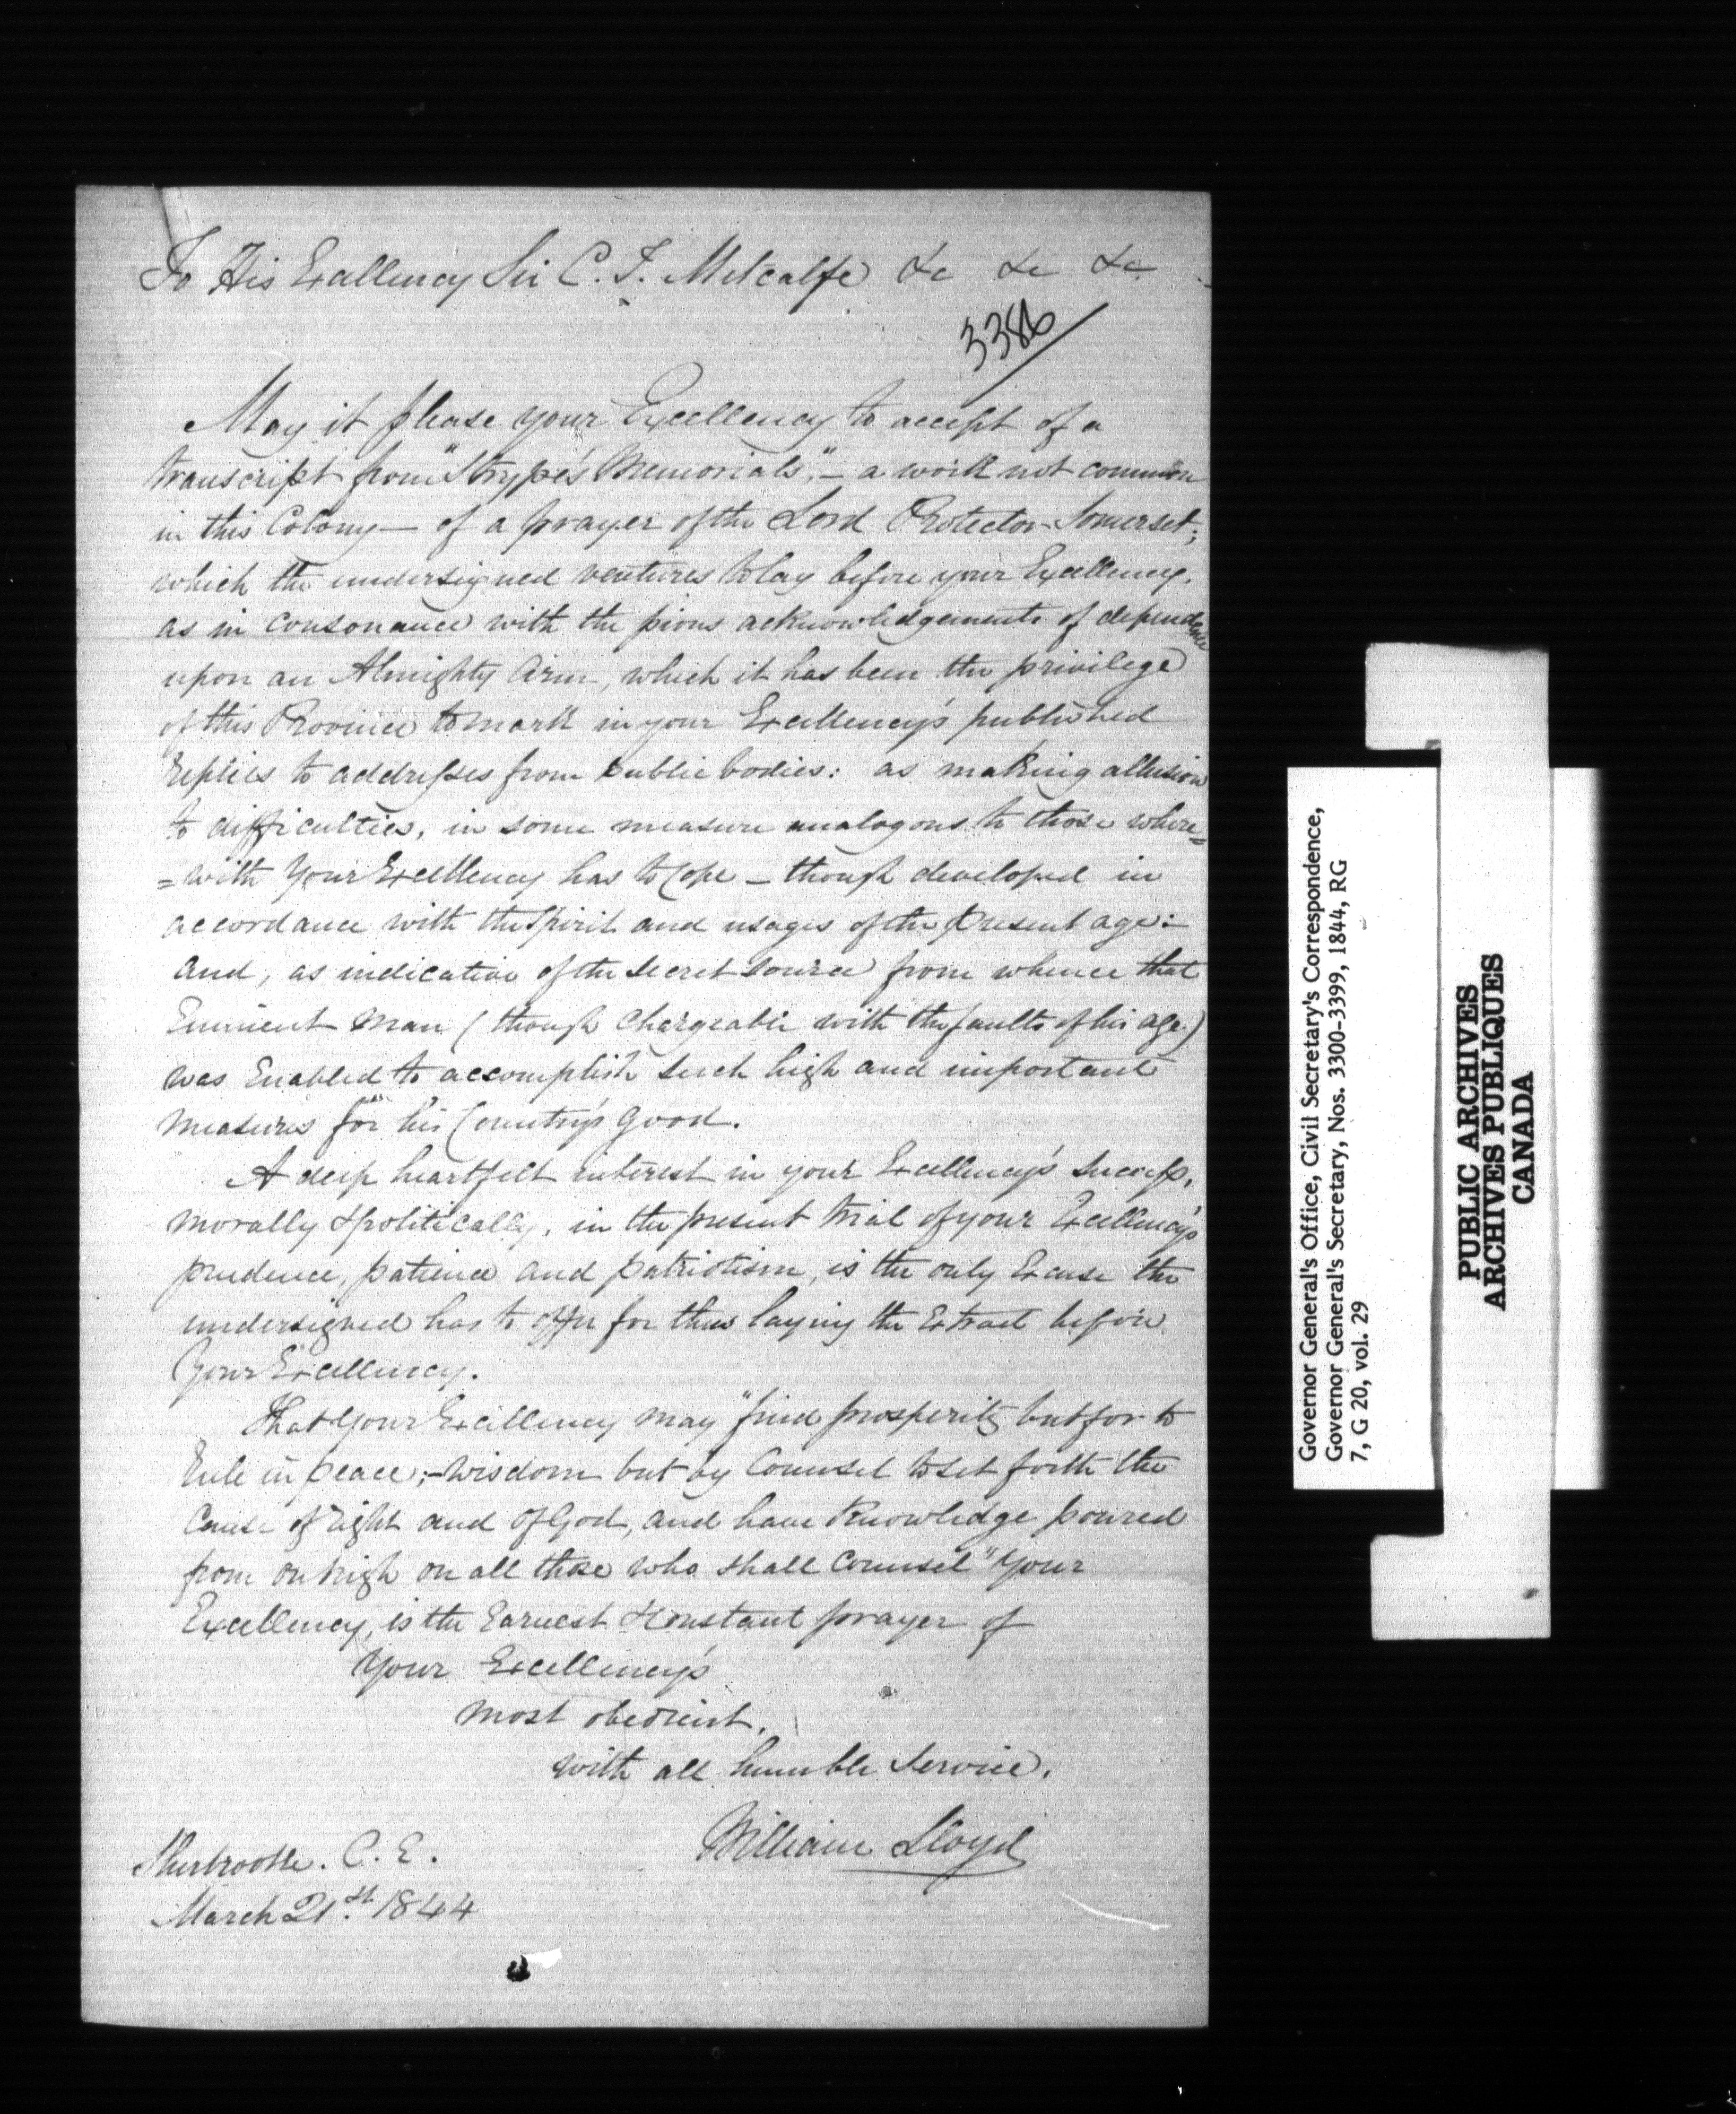 To His Excellency Sir C. T. Metcalfe &c &c &c
3386
May it please your Excellency to accept of a
transcript from "Strype's Memorials", – a work not common
in this Colony – of a prayer of the Lord Protector Somerset;
which the undersigned ventures to lay before your Excellency,
as in consonance with the pious acknowledgements of dependence
upon an Almighty Arm, which it has been the privilege
of this Province to mark in your Excellency's published
replies to addresses from public bodies: as making allusion
to difficulties, in some measure analogous to those where=
=with Your Excellency has to Cope – though developed in
accordance with the Spirit and usages of the present age:
and, as indicative of the secret source from whence that
Eminent Man (though chargeable with the faults of his age)
was Enabled to accomplish such high and important
measures for his Country's good.
A deep heartfelt interest in your Excellency's success,
morally & politically, in the present trial of your Excellency's
prudence, patience and patriotism, is the only Excuse the
undersigned has to offer for thus laying the Extract before
Your Excellency.
That Your Excellency may "find prosperity but for to
Rule in peace; – Wisdom but by Counsel to set forth the
Cause of right and of God, and have Knowledge poured
from on high on all those who shall Counsel" Your
Excellency, is the Earnest & Constant prayer of
Your Excellency's
most obedient,
with all humble Service,
William Lloyd
Sherbrooke. C. E.
March 21st. 1844
Governor General's Office, Civil Secretary's Correspondence,
Governor General's Secretary, Nos. 3300-3399, 1844, RG
7, G 20, vol. 29
PUBLIC ARCHIVES
ARCHIVES PUBLIQUES
CANADA